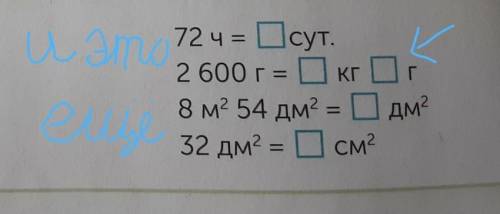 и это
72 ч = □ сут.
2 600 г = □ кг □ г
еще
8 м² 54 дм² = □ дм²
32 дм² = □ см²